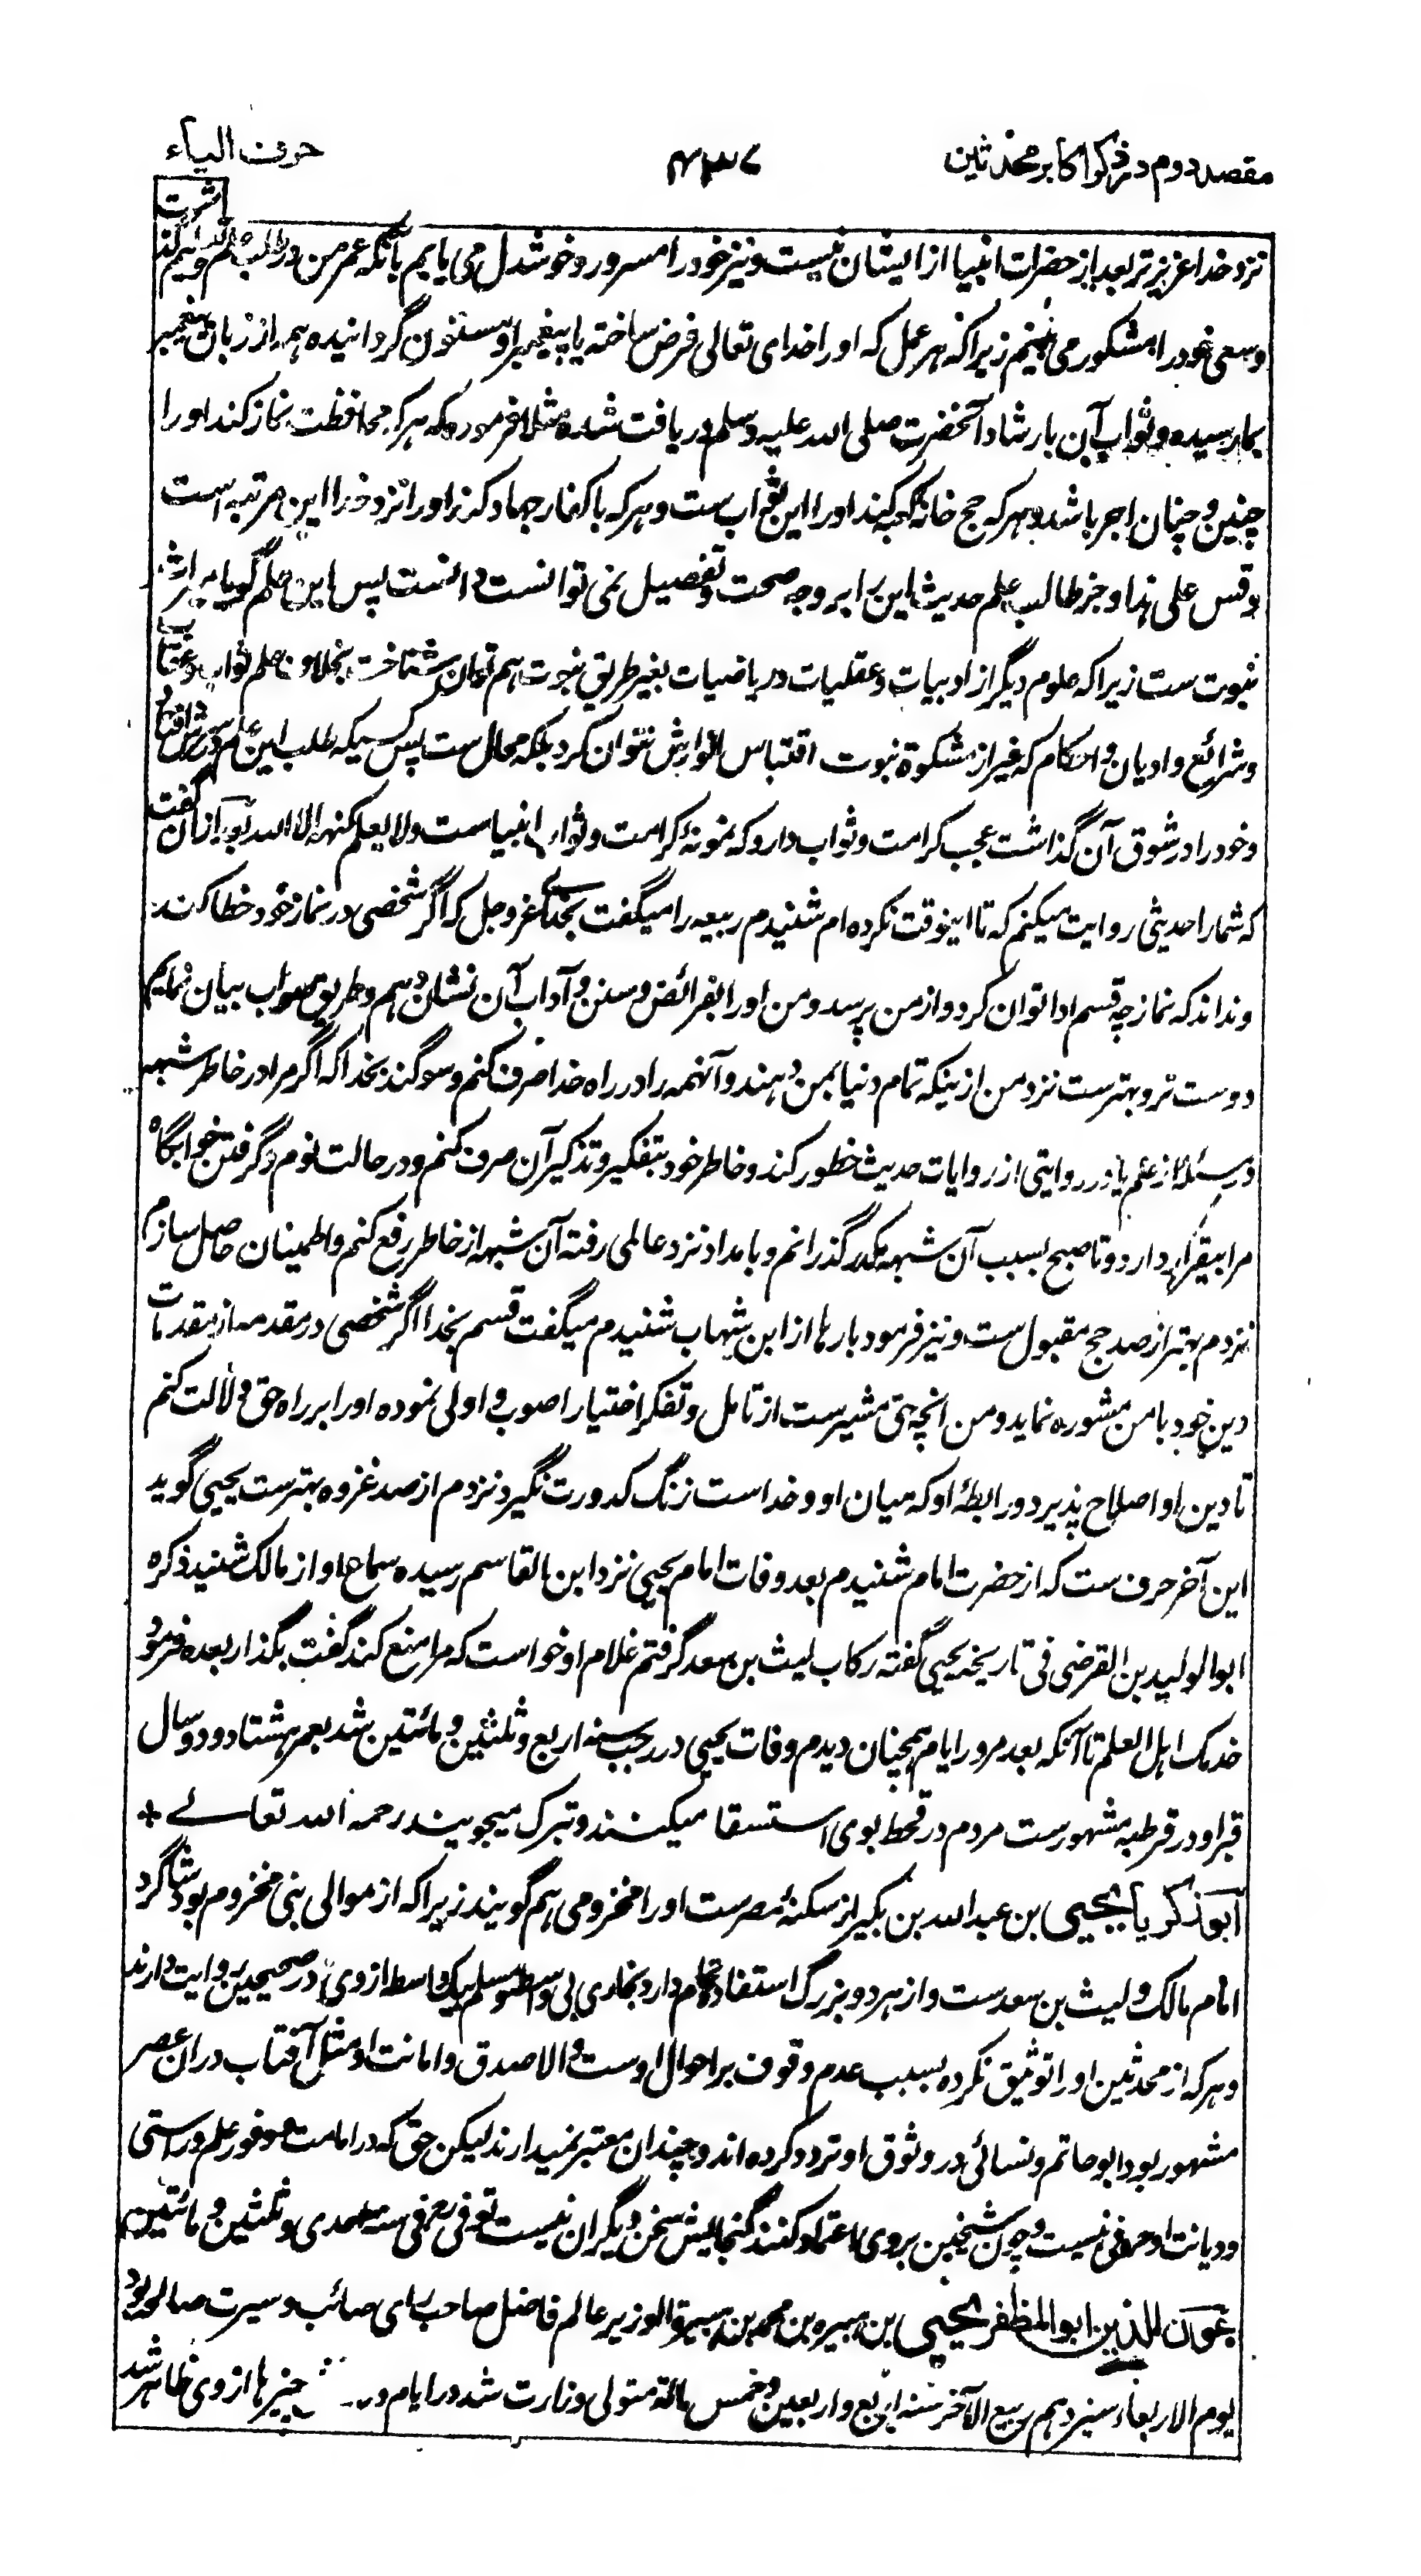 مقصد دوم در ذکر اکابر محدثین ۴۳۷ حرف الیاء
نزد خدا عزیزتر بعد از حضرات انبیا از ایشان نیست و نیز خود را مسرور و خوشدل می یابم بآنکه عمر من در طلب علم گذشت
وسعی خود را مشکور می بینم زیراکه هر عمل که او را خدای تعالی فرض ساخته یا پیغمبر او مسنون گردانیده همه از زبان پیغمبر
بما رسیده و ثواب آن بارشاد آنحضرت صلی الله علیه وسلم دریافت شده مثلا فرموده که هرکه محافظت نماز کند او را
چنین و چنان اجر باشد و هرکه حج خانه کعبه کند او را این ثواب ست و هرکه با کفار جهاد کند او را نزد خدا این مرتبه است
وقس علی هذا و جز طالب علم حدیث این را بر وجه صحت و تفصیل نمی توانست دانست پس این علم گویا میراث
نبوت ست زیراکه علوم دیگر از ادبیات و عقلیات و ریاضیات بغیر طریق نبوت هم توان شناخت بخلاف علم ثواب و عقاب
و شرائع و ادیان و احکام که غیر از مشکوة نبوت اقتباس انوارش نتوان کرد بلکه محال ست پس کسیکه طلب این علم
و خود را در شوق آن گذاشت عجب کرامت و ثواب دارد که نمونهٔ کرامت و ثواب انبیاست ولا یعلم کنهه الا الله بعد ازان گفت
که شما را حدیثی روایت میکنم که تا اینوقت نکرده ام شنیدم ربیعه را میگفت بخدای عزوجل که اگر شخصی در نماز خود خطا کند
و نداند که نماز چه قسم ادا توان کرد و از من پرسد و من او را بفرائض و سنن و آداب آن نشان دهم و طریق صواب بیان نمایم
دوست تر و بهترست نزد من از ینکه تمام دنیا بمن دهند و آنهمه را در راه خدا صرف کنم و سوگند بخدا که اگر مرا در خاطر شبهه
در مسئله از علم یا در روایتی از روایات حدیث خطور کند و خاطر خود بتفکیر و تذکیر آن صرف کنم و در حالت نوم و گرفتن خوابگاه
مرا بیقرار دارد و تا صبح بسبب آن شبهه مکدر گذرانم و بامداد نزد عالمی رفته آن شبهه از خاطر رفع کنم و اطمینان حاصل سازم
نزدم بهتر از صد حج مقبول ست و نیز فرمود بارها از ابن شهاب شنیدم میگفت قسم بخدا اگر شخصی در مقدمه از مقدمات
دین خود با من مشوره نماید و من انچه حق مشیرست از تامل و تفکر اختیار اصوب و اولی نموده او را بر راه حق دلالت کنم
تا دین او اصلاح پذیرد و رابطهٔ او که میان او و خداست زنگ کدورت نگیرد نزدم از صد غزوه بهترست یحیی گوید
این آخر حرف ست که از حضرت امام شنیدم بعد وفات امام یحیی نزد ابن القاسم رسیده سماع او از مالک شنید ذکره
ابو الولید بن الفرضی فی تاریخه یحیی گفته رکاب لیث بن سعد گرفتم غلام او خواست که مرا منع کند گفت بگذار بعده فرمود
خدمک اهل العلم تا آنکه بعد مرور ایام همچنان دیدم وفات یحیی در رجب سنه اربع و ثلثین و مائتین شد بعمر هشتاد و دو سال
قبر او در قرطبه مشهورست مردم در قحط بوی استسقا میکنند و تبرک میجویند رحمه الله تعالے +
ابو زکریا یحیی بن عبدالله بن بکیر از سکنهٔ مصرست او را مخزومی هم گویند زیراکه از موالی بنی مخزوم بود شاگرد
امام مالک و لیث بن سعد ست و از هر دو بزرگ استفاده تمام دارد بخاری بی واسطه و مسلم بیک واسطه از وی در صحیحین روایت دارند
و هرکه از محدثین او را توثیق نکرده بسبب عدم وقوف بر احوال اوست و الا صدق و امانت او مثل آفتاب دران عصر
مشهور بود ابو حاتم و نسائی در وثوق او تردد کرده اند و چندان معتبر نمیدارند لیکن حق که در امامت و وفور علم و راستی
و دیانت او حرفی نیست و چون شیخین بروی اعتماد کنند گنجایش سخن دیگران نیست توفی بمصر فی سنه احدی و ثلثین و مائتین
عون الدین ابو المظفر یحیی بن هبیره بن محمد بن هبیره الوزیر عالم فاضل صاحب رای صائب و سیرت صالحه بود
یوم الاربعاء سیزدهم ربیع الآخر سنه اربع و اربعین و خمس مائة متولی وزارت شد در ایام چیزها از وی ظاهر شد